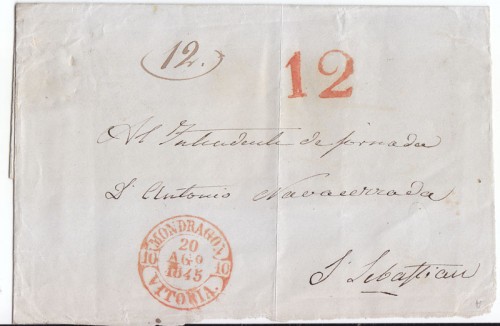 12.
12
Al Intendente de jornada
D. Antonio Navacerrada
MONDRAGON
10 20 10
AGO
1845
VITORIA.
S. Sebastian